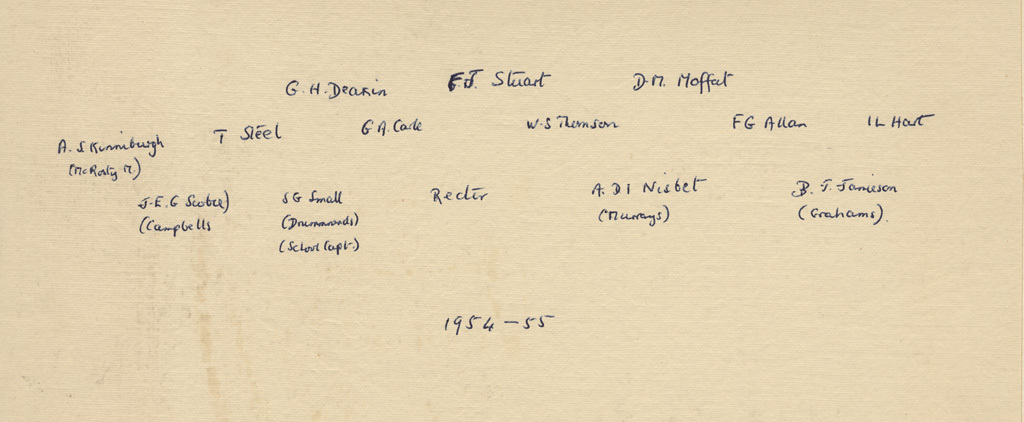 G. H. Deakin F.J. Stuart D.M. Moffat
A. S Kinniburgh T Steel G A. Carle W.S Thomson F G Allan I L Hart
(McRosty M.)
J.E.G Scobie) S G Small Rector A. D I Nisbet B. J. Jamieson
(Campbells (Drummonds) (Murrays) (Grahams).
(School Capt.)
1954-55